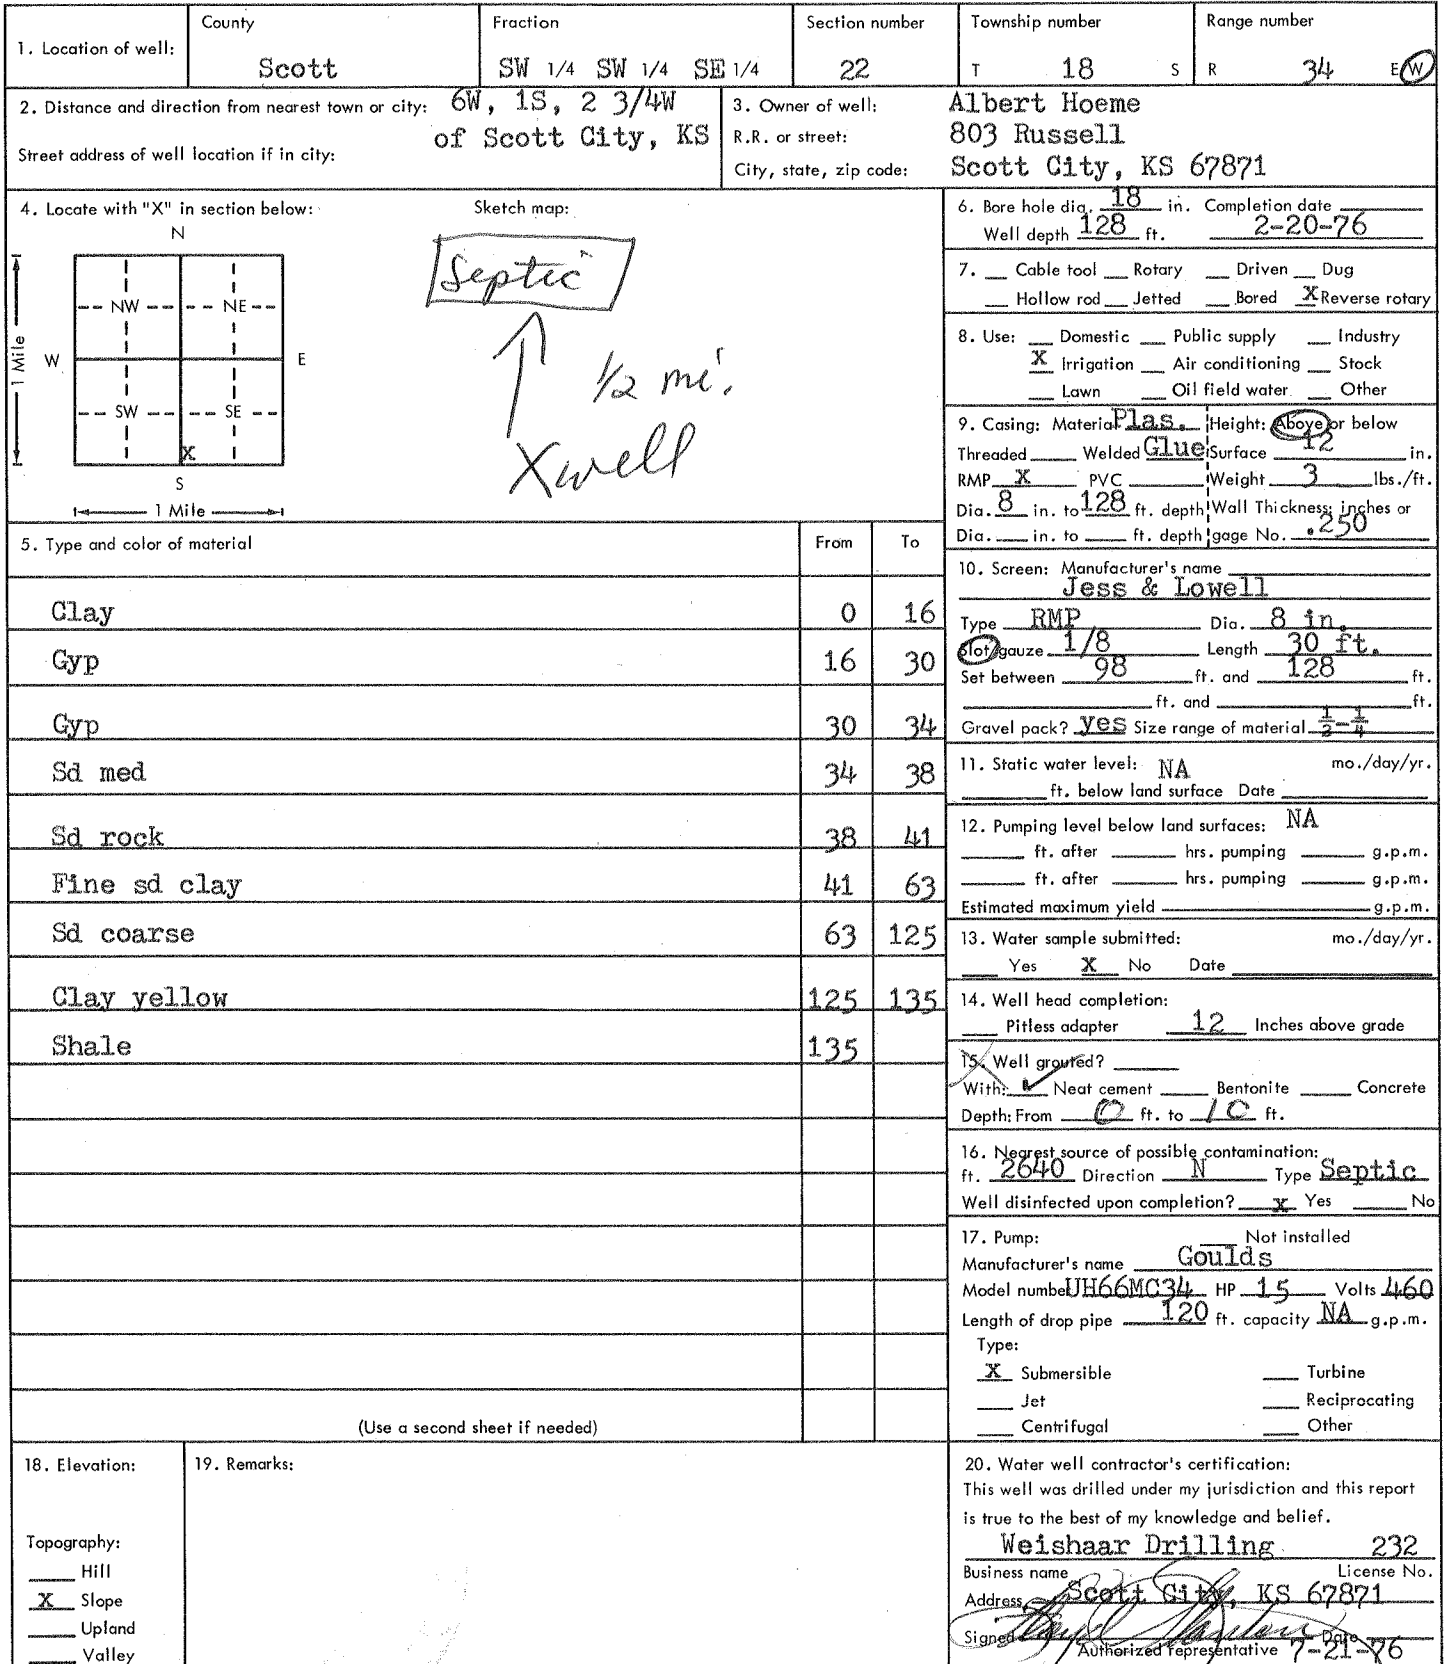 1. Location of well: County Scott Fraction SW 1/4 SW 1/4 SE 1/4 Section number 22 Township number T 18 S Range number R 34 E W
2. Distance and direction from nearest town or city: 6W, 1S, 2 3/4W
of Scott City, KS
Street address of well location if in city:
3. Owner of well: Albert Hoeme
R.R. or street: 803 Russell
City, state, zip code: Scott City, KS 67871
4. Locate with "X" in section below:
Sketch map:
N
NW NE
W E
1 Mile
SW SE
X
S
1 Mile
Septic
1/2 mi.
X well
5. Type and color of material From To
Clay 0 16
Gyp 16 30
Gyp 30 34
Sd med 34 38
Sd rock 38 41
Fine sd clay 41 63
Sd coarse 63 125
Clay yellow 125 135
Shale 135
(Use a second sheet if needed)
6. Bore hole dia. 18 in. Completion date
Well depth 128 ft. 2-20-76
7. Cable tool Rotary Driven Dug
Hollow rod Jetted Bored X Reverse rotary
8. Use: Domestic Public supply Industry
X Irrigation Air conditioning Stock
Lawn Oil field water Other
9. Casing: Material Plas. Height: Above or below
Threaded Welded Glue Surface 12 in.
RMP X PVC Weight 3 lbs./ft.
Dia. 8 in. to 128 ft. depth Wall Thickness: inches or
Dia. in. to ft. depth gage No. .250
10. Screen: Manufacturer's name
Jess & Lowell
Type RMP Dia. 8 in.
Slot/gauze 1/8 Length 30 ft.
Set between 98 ft. and 128 ft.
ft. and ft.
Gravel pack? yes Size range of material 1/2-1/4
11. Static water level: NA mo./day/yr.
ft. below land surface Date
12. Pumping level below land surfaces: NA
ft. after hrs. pumping g.p.m.
ft. after hrs. pumping g.p.m.
Estimated maximum yield g.p.m.
13. Water sample submitted: mo./day/yr.
Yes X No Date
14. Well head completion:
Pitless adapter 12 Inches above grade
15. Well grouted?
With: ✓ Neat cement Bentonite Concrete
Depth: From 0 ft. to 10 ft.
16. Nearest source of possible contamination:
ft. 2640 Direction N Type Septic
Well disinfected upon completion? x Yes No
17. Pump: Not installed
Manufacturer's name Goulds
Model number UH66MC34 HP 15 Volts 460
Length of drop pipe 120 ft. capacity NA g.p.m.
Type:
X Submersible Turbine
Jet Reciprocating
Centrifugal Other
18. Elevation:
Topography:
Hill
X Slope
Upland
Valley
19. Remarks:
20. Water well contractor's certification:
This well was drilled under my jurisdiction and this report
is true to the best of my knowledge and belief.
Weishaar Drilling 232
Business name License No.
Address Scott City, KS 67871
Signed Date
Authorized representative 7-21-76